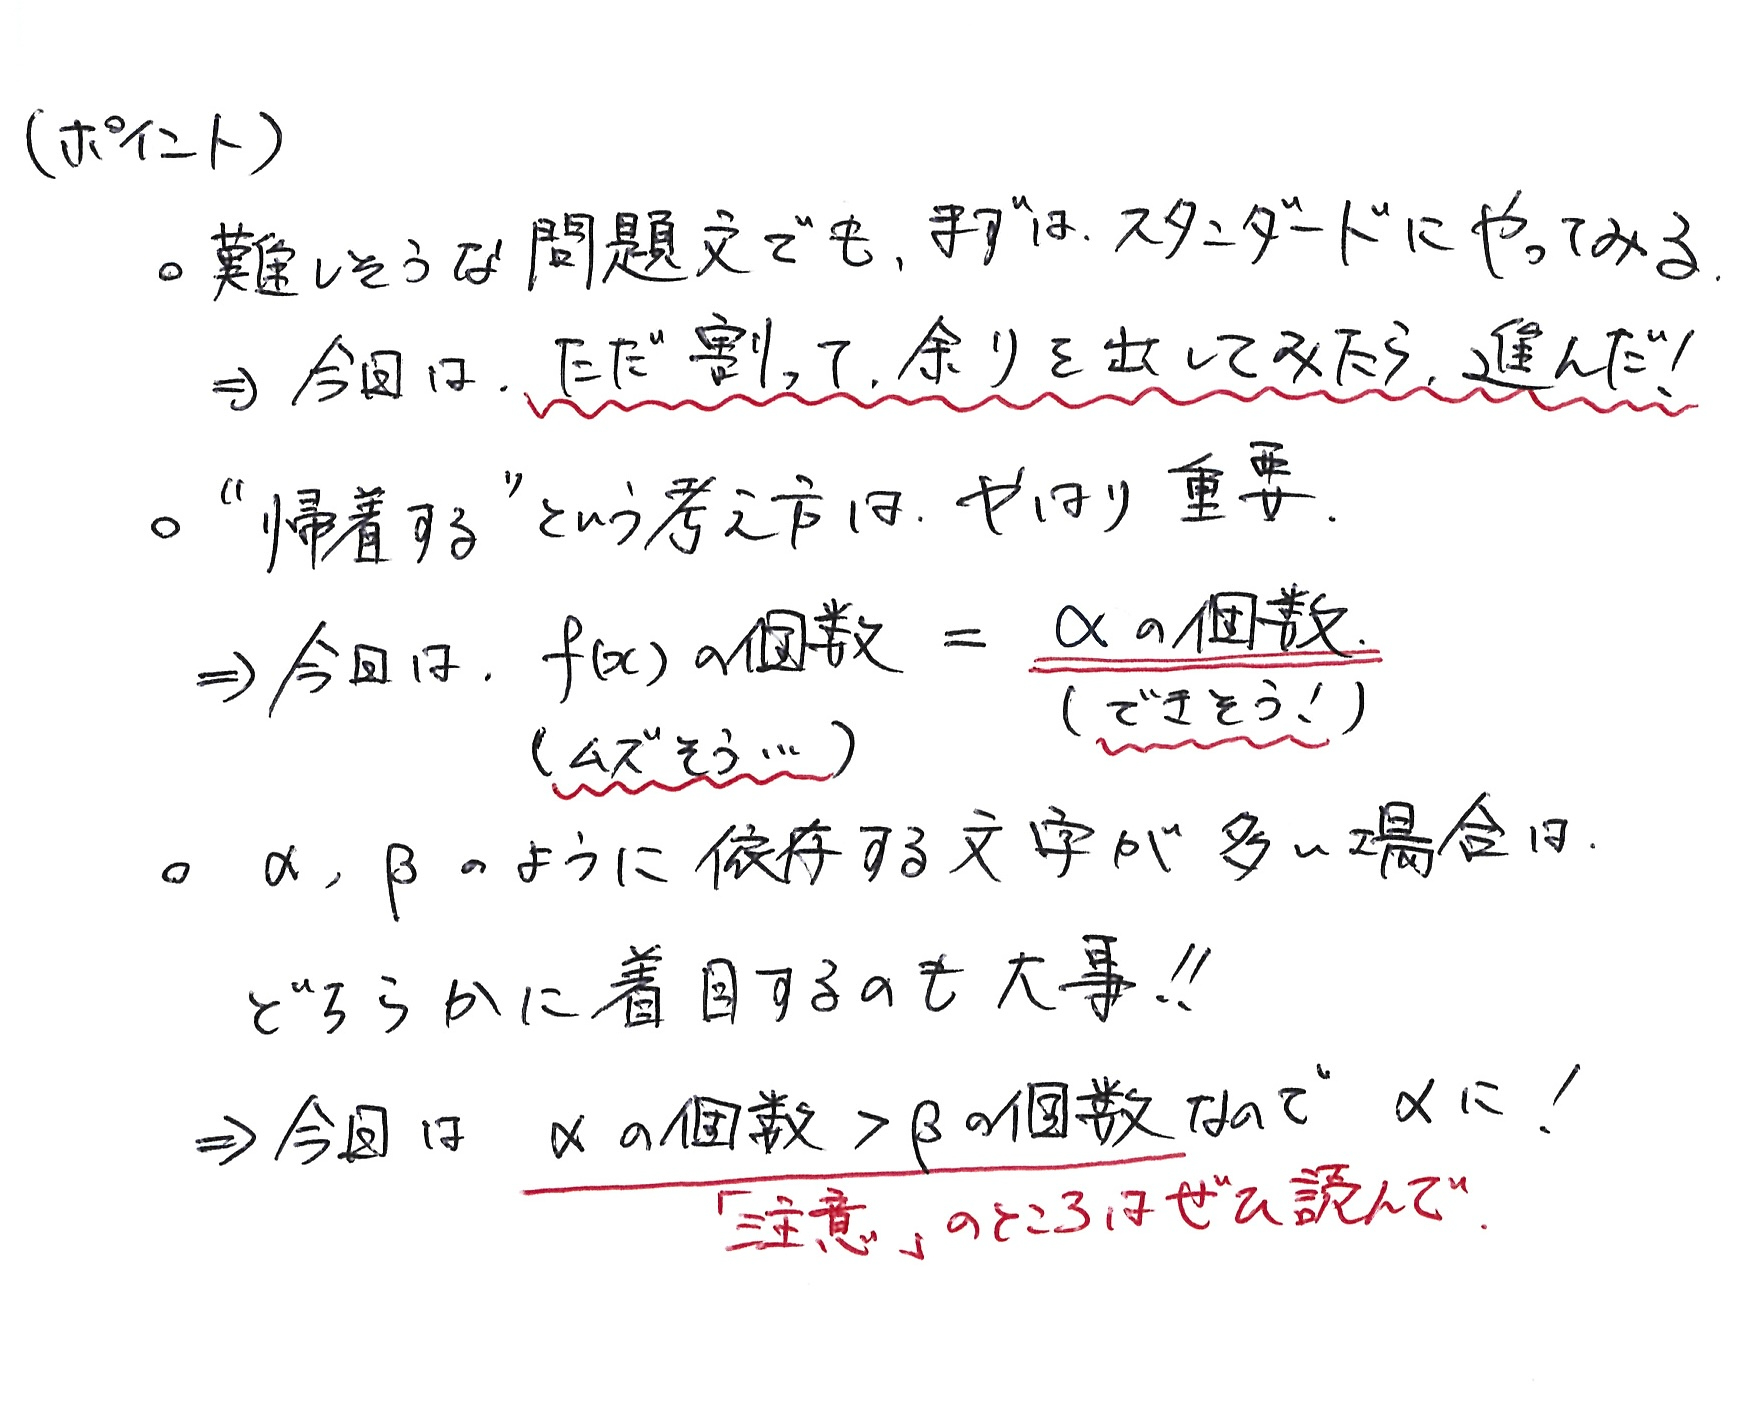 (ポイント)
○ 難しそうな問題文でも、まずは、スタンダードにやってみる.
⇒ 今回は、ただ割って、余りを出してみたら、進んだ!
○ “帰着する”という考え方は、やはり重要.
⇒ 今回は、f(x)の個数 = αの個数.
(ムズそう…) (できそう!)
○ α, βのように依存する文字が多い場合は、
どちらかに着目するのも大事!!
⇒ 今回は αの個数 > βの個数なので αに!
「注意」のところはぜひ読んで.